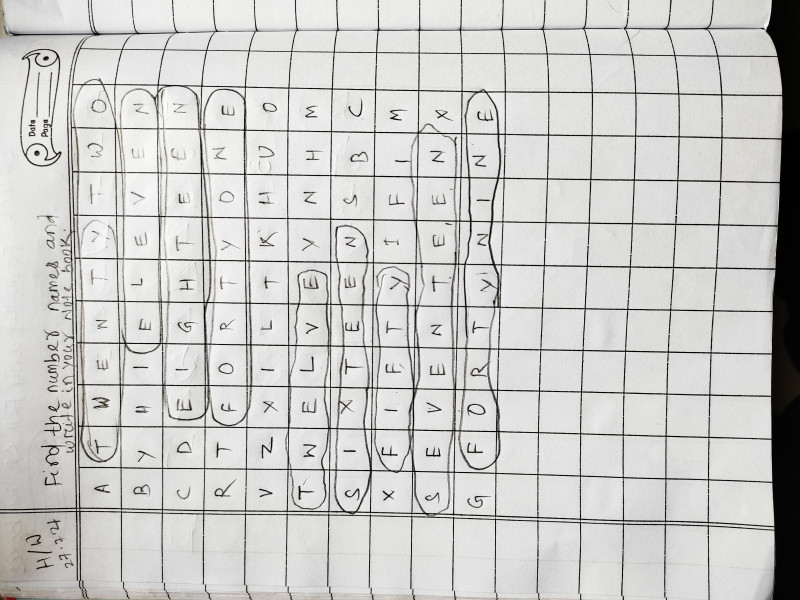 Date
Page
H/W
27.7.24
Find the number names and
write in your Note book.
A T W E N T Y T W O
B Y H I E L E V E N
C D E I G H T E E N
R T F O R T Y O N E
V Z X I L T K H U O
T W E L V E Y N H M
S I X T E E N S B C
X F I F T Y I F I M
S E V E N T E E N X
G F O R T Y N I N E